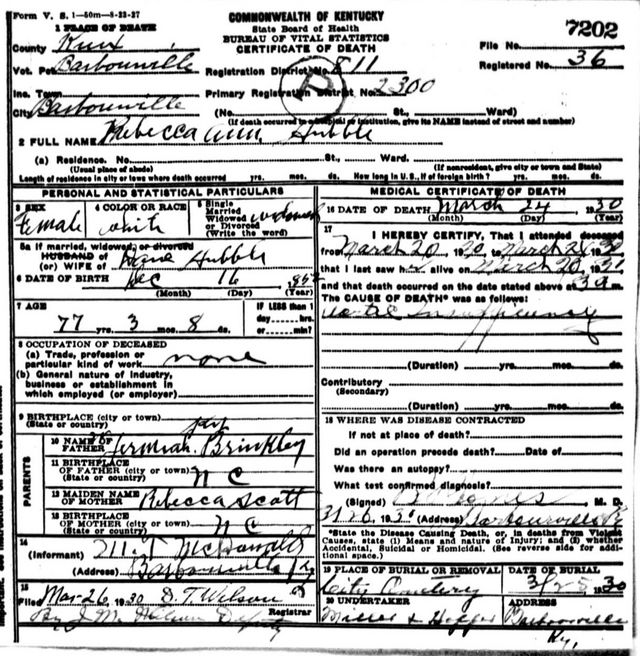 Form V. S. 1—50m—8-22-27
1 PLACE OF DEATH
COMMONWEALTH OF KENTUCKY
State Board of Health
BUREAU OF VITAL STATISTICS
CERTIFICATE OF DEATH
7202
County Knox
File No.
Vot. Pct. Barbourville
Registration District No. 811
Registered No. 36
Inc. Town
Primary Registration District No. 2300
City Barbourville (No. St., Ward)
(If death occurred in a hospital or institution, give its NAME instead of street and number)
2 FULL NAME Rebecca Ann Hubble
(a) Residence. No. St., Ward.
(Usual place of abode) (If nonresident, give city or town and State)
Length of residence in city or town where death occurred yrs. mos. ds. How long in U. S., if of foreign birth? yrs. mos. ds.
PERSONAL AND STATISTICAL PARTICULARS
3 SEX Female
4 COLOR OR RACE white
5 Single Married Widowed or Divorced (Write the word) widowed
5a If married, widowed, or divorced
HUSBAND of
(or) WIFE of Hubble
6 DATE OF BIRTH Dec 16 852
(Month) (Day) (Year)
7 AGE
77 yrs. 3 mos. 8 ds.
IF LESS than 1 day, hrs. or min.?
8 OCCUPATION OF DECEASED
(a) Trade, profession or particular kind of work none
(b) General nature of industry, business or establishment in which employed (or employer)
9 BIRTHPLACE (city or town)
State or country) Ky
PARENTS
10 NAME OF FATHER Jermiah Brinkley
11 BIRTHPLACE OF FATHER (city or town) (State or country) N C
12 MAIDEN NAME OF MOTHER Rebecca Scott
13 BIRTHPLACE OF MOTHER (city or town) (State or country) N C
14
(Informant) McDonald
(Address) Barbourville Ky
15
Filed Mar-26 1930 D. T. Wilson
Registrar
By J. M. Wilson Deputy
MEDICAL CERTIFICATE OF DEATH
16 DATE OF DEATH March 24 1930
(Month) (Day) (Year)
17
I HEREBY CERTIFY, That I attended deceased
from March 20, 1930 to March 24, 1930
that I last saw her alive on March 20, 19
and that death occurred on the date stated above at 3 a m.
The CAUSE OF DEATH* was as follows:
insufficiency
(Duration) yrs. mos. ds.
Contributory
(Secondary)
(Duration) yrs. mos. ds.
18 WHERE WAS DISEASE CONTRACTED
If not at place of death?
Did an operation precede death? Date of
Was there an autopsy?
What test confirmed diagnosis?
(Signed) M. D.
3/26, 1930 (Address) Barbourville Ky
*State the Disease Causing Death, or, in deaths from Violent Causes, state (1) Means and nature of Injury; and (2) whether Accidental, Suicidal or Homicidal. (See reverse side for additional space.)
19 PLACE OF BURIAL OR REMOVAL City Cemetery
DATE OF BURIAL 3/25 1930
20 UNDERTAKER Miller &
ADDRESS Barbourville Ky.